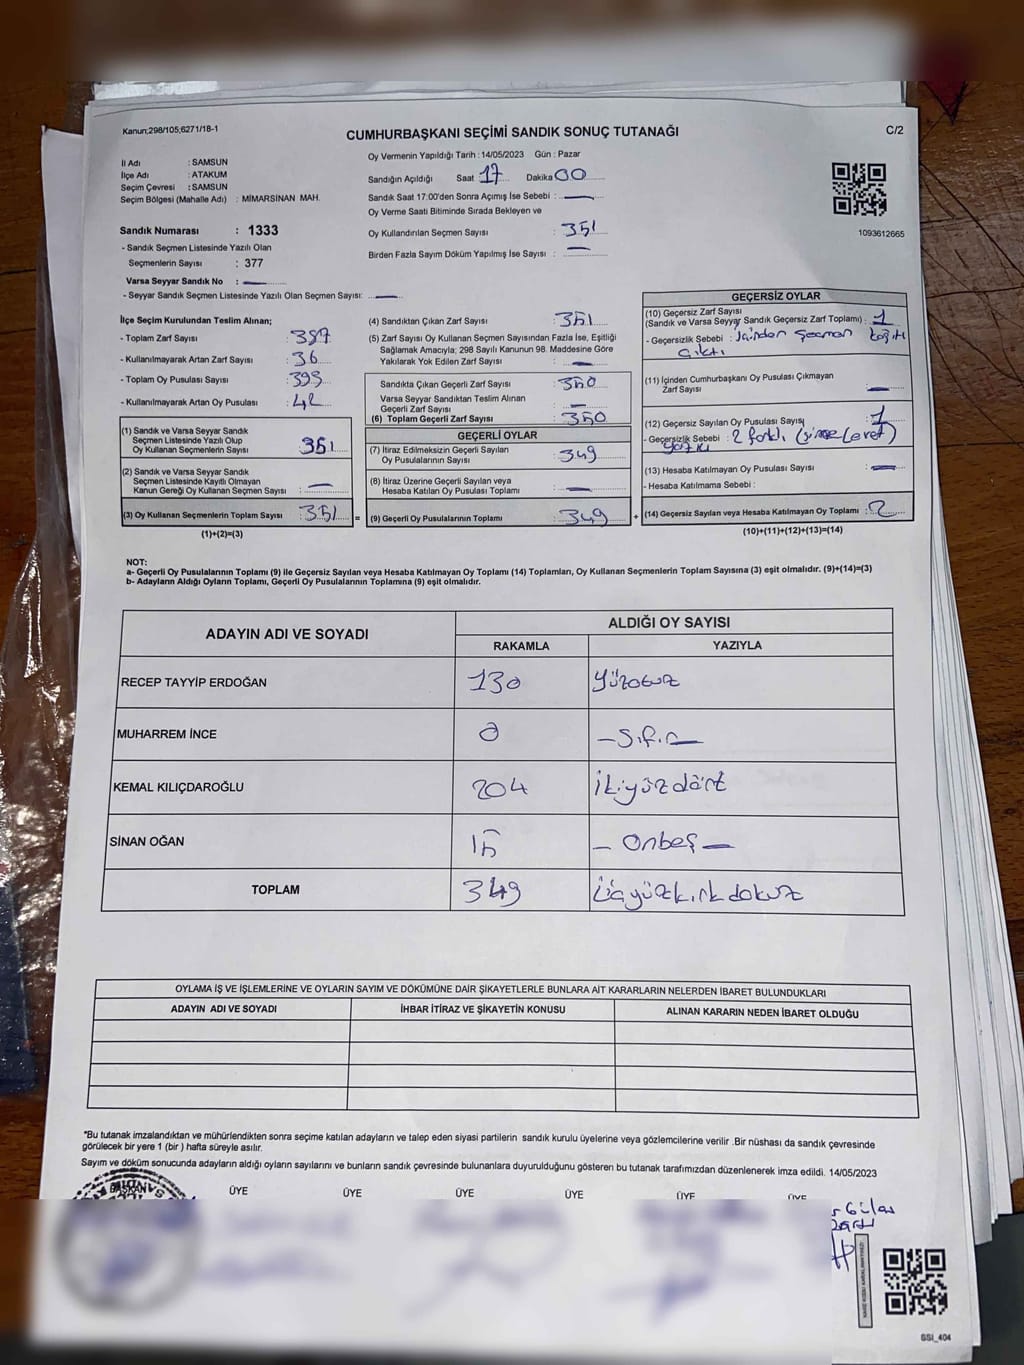 Kanun;298/105,6271/18-1
CUMHURBAŞKANI SEÇİMİ SANDIK SONUÇ TUTANAĞI
C/2
İl Adı : SAMSUN
İlçe Adı : ATAKUM
Seçim Çevresi : SAMSUN
Seçim Bölgesi (Mahalle Adı) : MİMARSINAN MAH.
Sandık Numarası : 1333
- Sandık Seçmen Listesinde Yazılı Olan
Seçmenlerin Sayısı : 377
Varsa Seyyar Sandık No : —
- Seyyar Sandık Seçmen Listesinde Yazılı Olan Seçmen Sayısı: —
Oy Vermenin Yapıldığı Tarih : 14/05/2023 Gün : Pazar
Sandığın Açıldığı Saat 17 Dakika 00
Sandık Saat 17:00'den Sonra Açımış İse Sebebi : —
Oy Verme Saati Bitiminde Sırada Bekleyen ve
Oy Kullandırılan Seçmen Sayısı : 351
Birden Fazla Sayım Döküm Yapılmış İse Sayısı : —
1093612665
İlçe Seçim Kurulundan Teslim Alınan;
- Toplam Zarf Sayısı : 387
- Kullanılmayarak Artan Zarf Sayısı : 36
- Toplam Oy Pusulası Sayısı : 393
- Kullanılmayarak Artan Oy Pusulası : 42
(1) Sandık ve Varsa Seyyar Sandık
Seçmen Listesinde Yazılı Olup
Oy Kullanan Seçmenlerin Sayısı 351
(2) Sandık ve Varsa Seyyar Sandık
Seçmen Listesinde Kayıtlı Olmayan
Kanun Gereği Oy Kullanan Seçmen Sayısı : —
(3) Oy Kullanan Seçmenlerin Toplam Sayısı : 351
(1)+(2)=(3)
(4) Sandıktan Çıkan Zarf Sayısı : 351
(5) Zarf Sayısı Oy Kullanan Seçmen Sayısından Fazla İse, Eşitliği
Sağlamak Amacıyla; 298 Sayılı Kanunun 98. Maddesine Göre
Yakılarak Yok Edilen Zarf Sayısı : —
Sandıkta Çıkan Geçerli Zarf Sayısı : 350
Varsa Seyyar Sandıktan Teslim Alınan
Geçerli Zarf Sayısı : —
(6) Toplam Geçerli Zarf Sayısı : 350
GEÇERLİ OYLAR
(7) İtiraz Edilmeksizin Geçerli Sayılan
Oy Pusulalarının Sayısı : 349
(8) İtiraz Üzerine Geçerli Sayılan veya
Hesaba Katılan Oy Pusulası Toplamı : —
=
(9) Geçerli Oy Pusulalarının Toplamı : 349
+
GEÇERSİZ OYLAR
(10) Geçersiz Zarf Sayısı
(Sandık ve Varsa Seyyar Sandık Geçersiz Zarf Toplamı) : 1
- Geçersizlik Sebebi : İçinden seçmen kağıtı
çıktı
(11) İçinden Cumhurbaşkanı Oy Pusulası Çıkmayan
Zarf Sayısı : —
(12) Geçersiz Sayılan Oy Pusulası Sayısı : 1
- Geçersizlik Sebebi : 2 farklı
(13) Hesaba Katılmayan Oy Pusulası Sayısı : —
- Hesaba Katılmama Sebebi :
(14) Geçersiz Sayılan veya Hesaba Katılmayan Oy Toplamı : 2
(10)+(11)+(12)+(13)=(14)
NOT:
a- Geçerli Oy Pusulalarının Toplamı (9) ile Geçersiz Sayılan veya Hesaba Katılmayan Oy Toplamı (14) Toplamları, Oy Kullanan Seçmenlerin Toplam Sayısına (3) eşit olmalıdır. (9)+(14)=(3)
b- Adayların Aldığı Oyların Toplamı, Geçerli Oy Pusulalarının Toplamına (9) eşit olmalıdır.
ADAYIN ADI VE SOYADI
ALDIĞI OY SAYISI
RAKAMLA YAZIYLA
RECEP TAYYİP ERDOĞAN 130 Yüzotuz
MUHARREM İNCE 0 — Sıfır —
KEMAL KILIÇDAROĞLU 204 İkiyüzdört
SİNAN OĞAN 15 — Onbeş —
TOPLAM 349 Üçyüzkırkdokuz
OYLAMA İŞ VE İŞLEMLERİNE VE OYLARIN SAYIM VE DÖKÜMÜNE DAİR ŞİKAYETLERLE BUNLARA AİT KARARLARIN NELERDEN İBARET BULUNDUKLARI
ADAYIN ADI VE SOYADI İHBAR İTİRAZ VE ŞİKAYETİN KONUSU ALINAN KARARIN NEDEN İBARET OLDUĞU
*Bu tutanak imzalandıktan ve mühürlendikten sonra seçime katılan adayların ve talep eden siyasi partilerin sandık kurulu üyelerine veya gözlemcilerine verilir .Bir nüshası da sandık çevresinde
görülecek bir yere 1 (bir ) hafta süreyle asılır.
Sayım ve döküm sonucunda adayların aldığı oyların sayılarını ve bunların sandık çevresinde bulunanlara duyurulduğunu gösteren bu tutanak tarafımızdan düzenlenerek imza edildi. 14/05/2023
ÜYE ÜYE ÜYE ÜYE ÜYE ÜYE
SSI_404